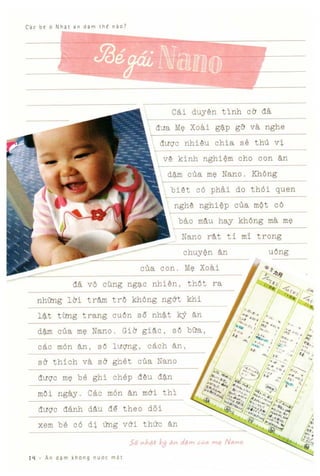 Các bé ở Nhật ăn dặm thế nào?
Bé gái Nano
Cái duyên tình cờ đã
đưa Mẹ Xoài gặp gỡ và nghe
được nhiều chia sẻ thú vị
về kinh nghiệm cho con ăn
dặm của mẹ Nano. Không
biết có phải do thói quen
nghề nghiệp của một cô
bảo mẫu hay không mà mẹ
Nano rất tỉ mỉ trong
chuyện ăn uống
của con. Mẹ Xoài
đã vô cùng ngạc nhiên, thốt ra
những lời trầm trồ không ngớt khi
lật từng trang cuốn sổ nhật ký ăn
dặm của mẹ Nano. Giờ giấc, số bữa,
các món ăn, số lượng, cách ăn,
sở thích và sở ghét của Nano
được mẹ bé ghi chép đều đặn
mỗi ngày. Các món ăn mới thì
được đánh dấu để theo dõi
xem bé có dị ứng với thức ăn
Sổ nhật ký ăn dặm của mẹ Nano
14 - Ăn dặm không nước mắt